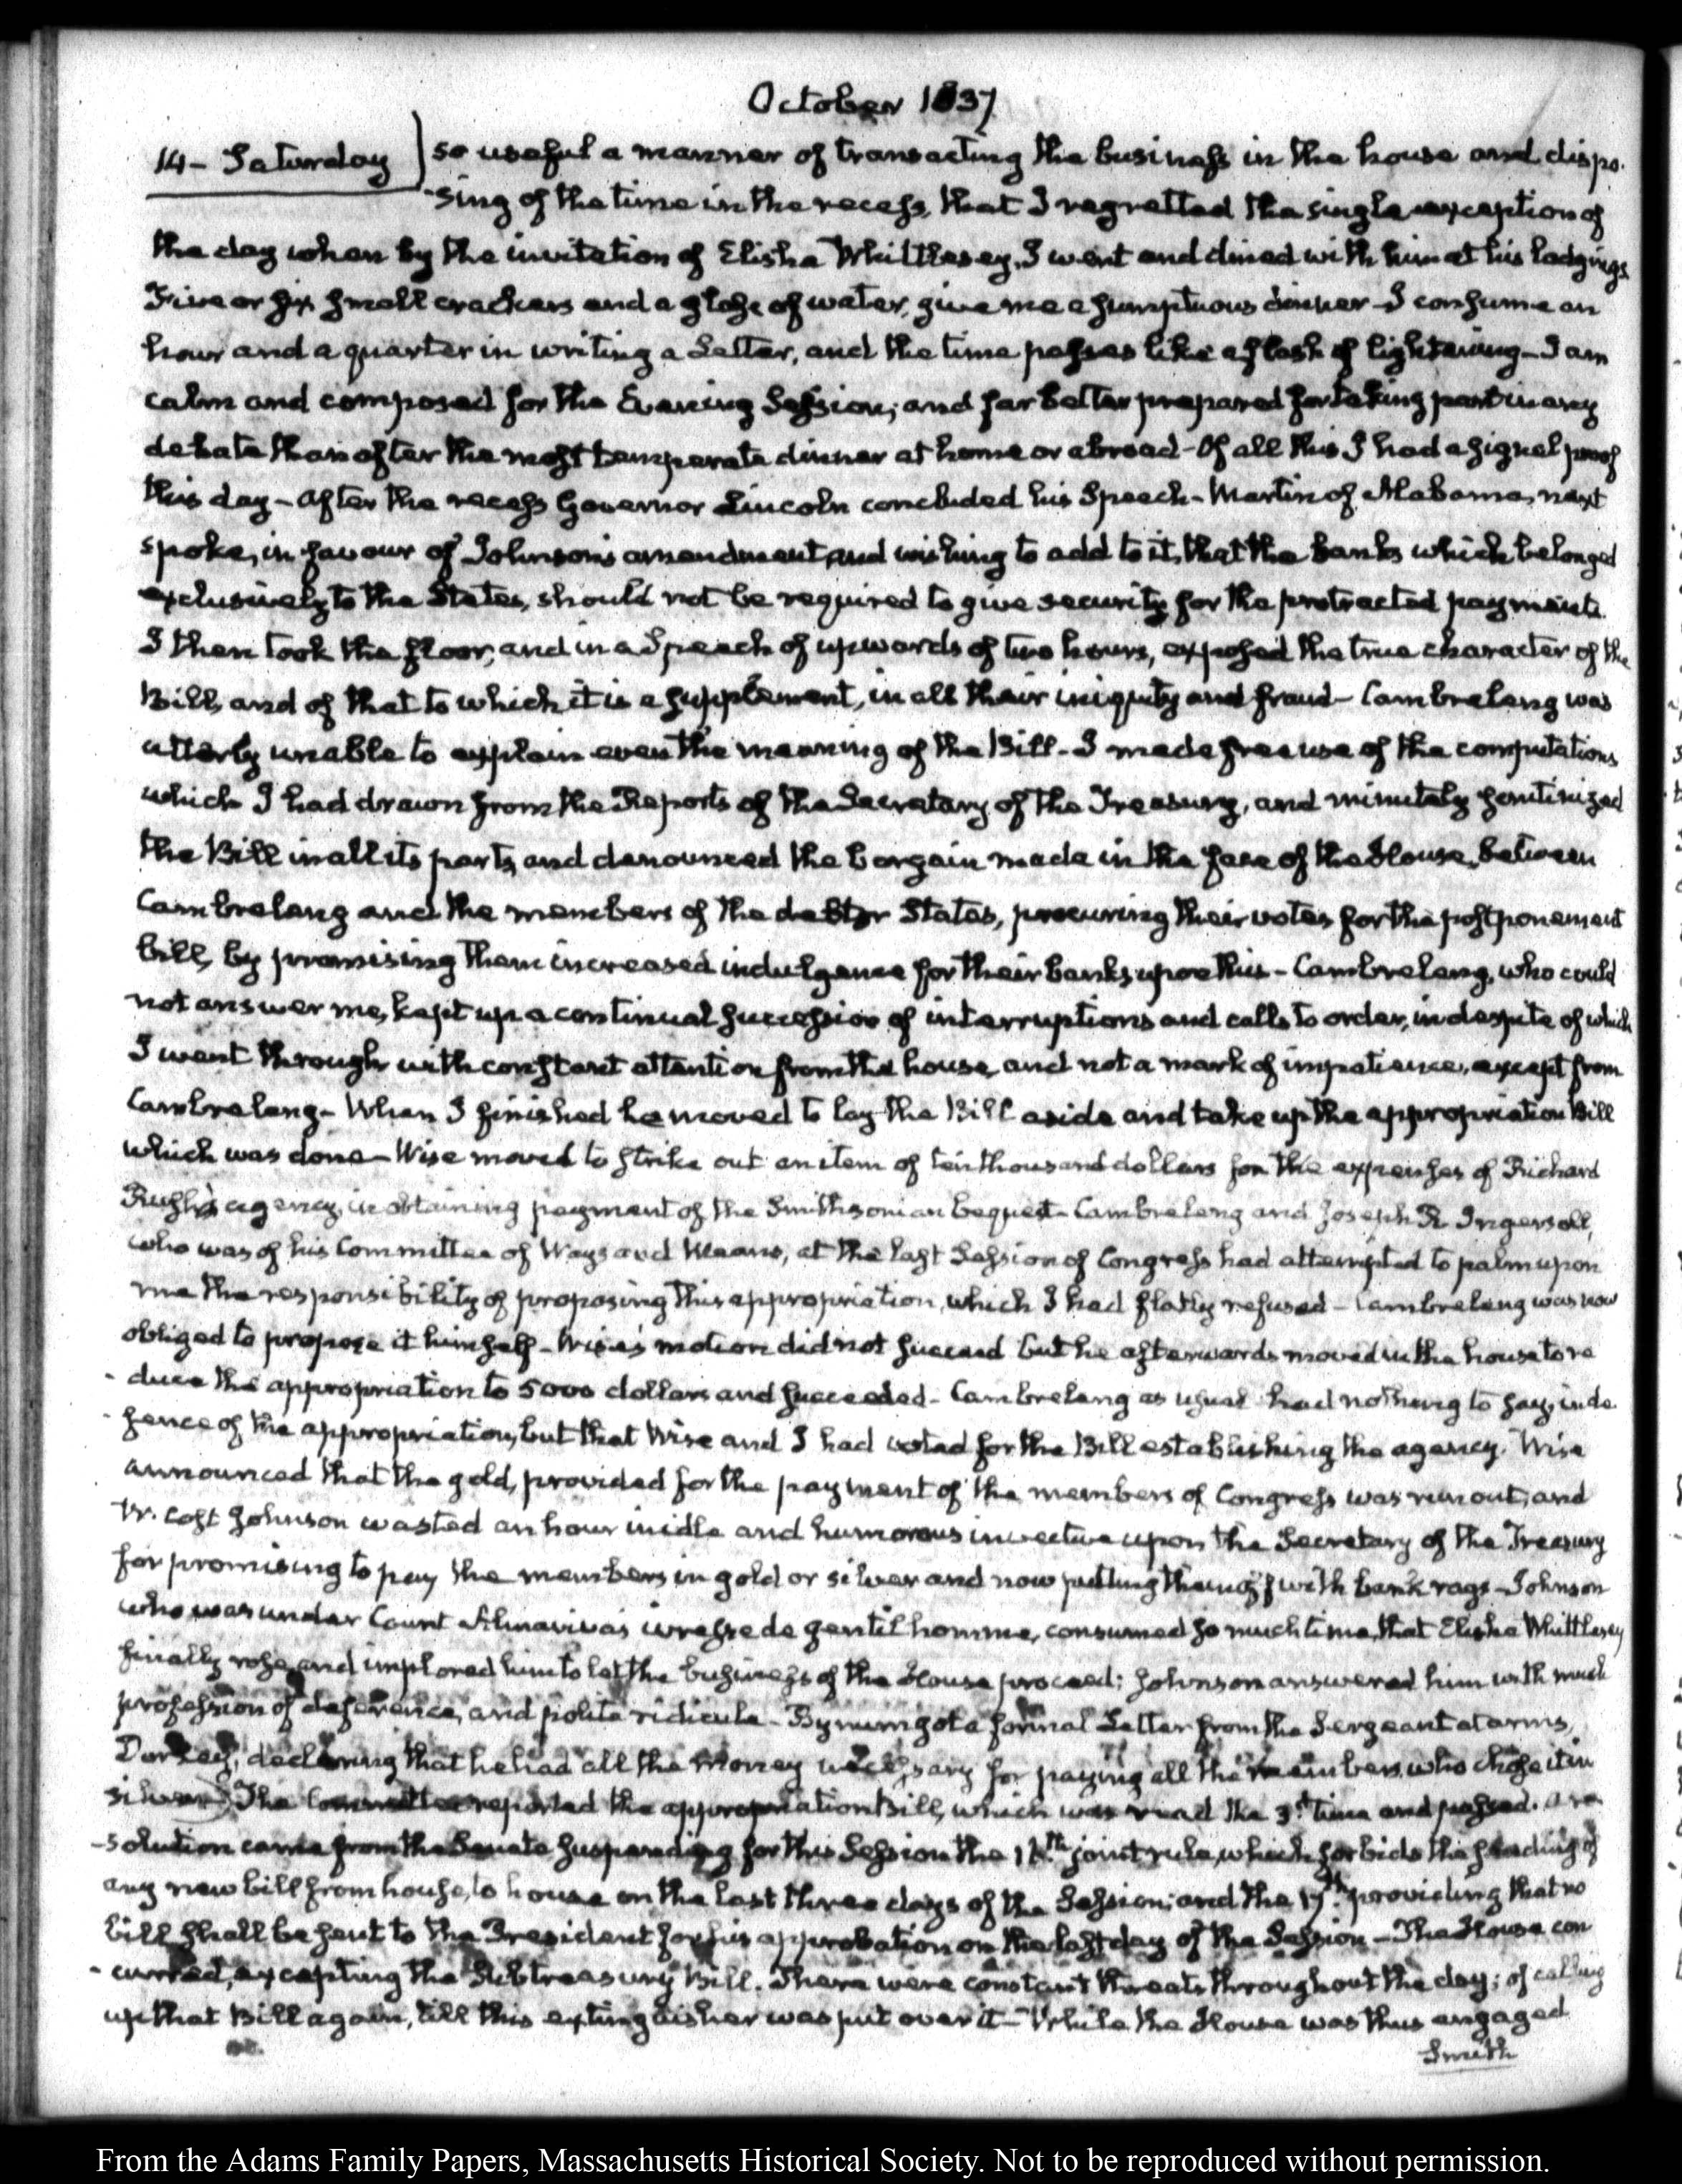 October 1837
14 - Saturday
so useful a manner of transacting the business in the house and dispo-
-sing of the time in the recess, that I regretted the single exception of
the day when by the invitation of Elisha Whittlesey, I went and dined with him at his lodgings
Five or six small crackers and a glass of water, give me a sumptuous dinner - I consume an
hour and a quarter in writing a Letter, and the time passes like a flash of lightening - I am
calm and composed for the Evening Session; and far better prepared for taking part in any
debate than after the most temperate dinner at home or abroad - Of all this I had a signal proof
this day - After the recess Governor Lincoln concluded his Speech - Martin of Alabama, next
spoke, in favour of Johnson's amendment, and wishing to add to it, that the banks which belonged
exclusively to the States, should not be required to give security for the protracted payments.
I then took the floor, and in a Speech of upwards of two hours, exposed the true character of the
Bill, and of that to which it is a supplement, in all their iniquity and fraud - Cambreleng was
utterly unable to explain even the meaning of the Bill - I made free use of the computations
which I had drawn from the Reports of the Secretary of the Treasury, and minutely scrutinized
the Bill in all its parts, and denounced the bargain made in the face of the House, between
Cambreleng and the members of the debtor States, procuring their votes for the postponement
bill, by promising them increased indulgence for their banks upon this - Cambreleng, who could
not answer me, kept up a continual succession of interruptions and calls to order, in despite of which
I went through with constant attention from the house, and not a mark of impatience, except from
Cambreleng - When I finished he moved to lay the Bill aside and take up the appropriation Bill
which was done - Wise moved to strike out an item of ten thousand dollars for the expenses of Richard
Rush's agency, in obtaining payment of the Smithsonian bequest - Cambreleng and Joseph R Ingersoll,
who was of his Committee of Ways and Means, at the last Session of Congress had attempted to palm upon
me the responsibility of proposing this appropriation, which I had flatly refused - Cambreleng was now
obliged to propose it himself - Wise's motion did not succeed but he afterwards moved in the house to re
-duce the appropriation to 5000 dollars and succeeded - Cambreleng as usual had nothing to say, in de
-fence of the appropriation, but that Wise and I had voted for the Bill establishing the agency. Wise
announced that the gold, provided for the payment of the members of Congress was run out; and
W. Cost Johnson wasted an hour in idle and humorous invective upon the Secretary of the Treasury
for promising to pay the members in gold or silver and now putting them off with bank rags - Johnson
who was under Count Almaviva's ivresse de gentilhomme, consumed so much time, that Elisha Whittlesey
finally rose, and implored him to let the business of the House proceed: Johnson answered him with much
profession of deference, and polite ridicule - Bynum got a formal Letter from the Sergeant at arms,
Dorsey, declaring that he had all the money necessary for paying all the members, who chose it in
silver. The Committee reported the appropriation Bill, which was read the 3d. time and passed. A re
-solution came from the Senate suspending for this Session the 16th. joint rule, which forbids the sending of
any new bill from house, to house on the last three days of the Session; and the 17th. providing that no
bill shall be sent to the President for his approbation on the last day of the Session - The House con
-curred, excepting the Subtreasury Bill. There were constant threats throughout the day; of calling
up that Bill again, till this extinguisher was put over it - While the House was thus engaged
Smith
From the Adams Family Papers, Massachusetts Historical Society. Not to be reproduced without permission.